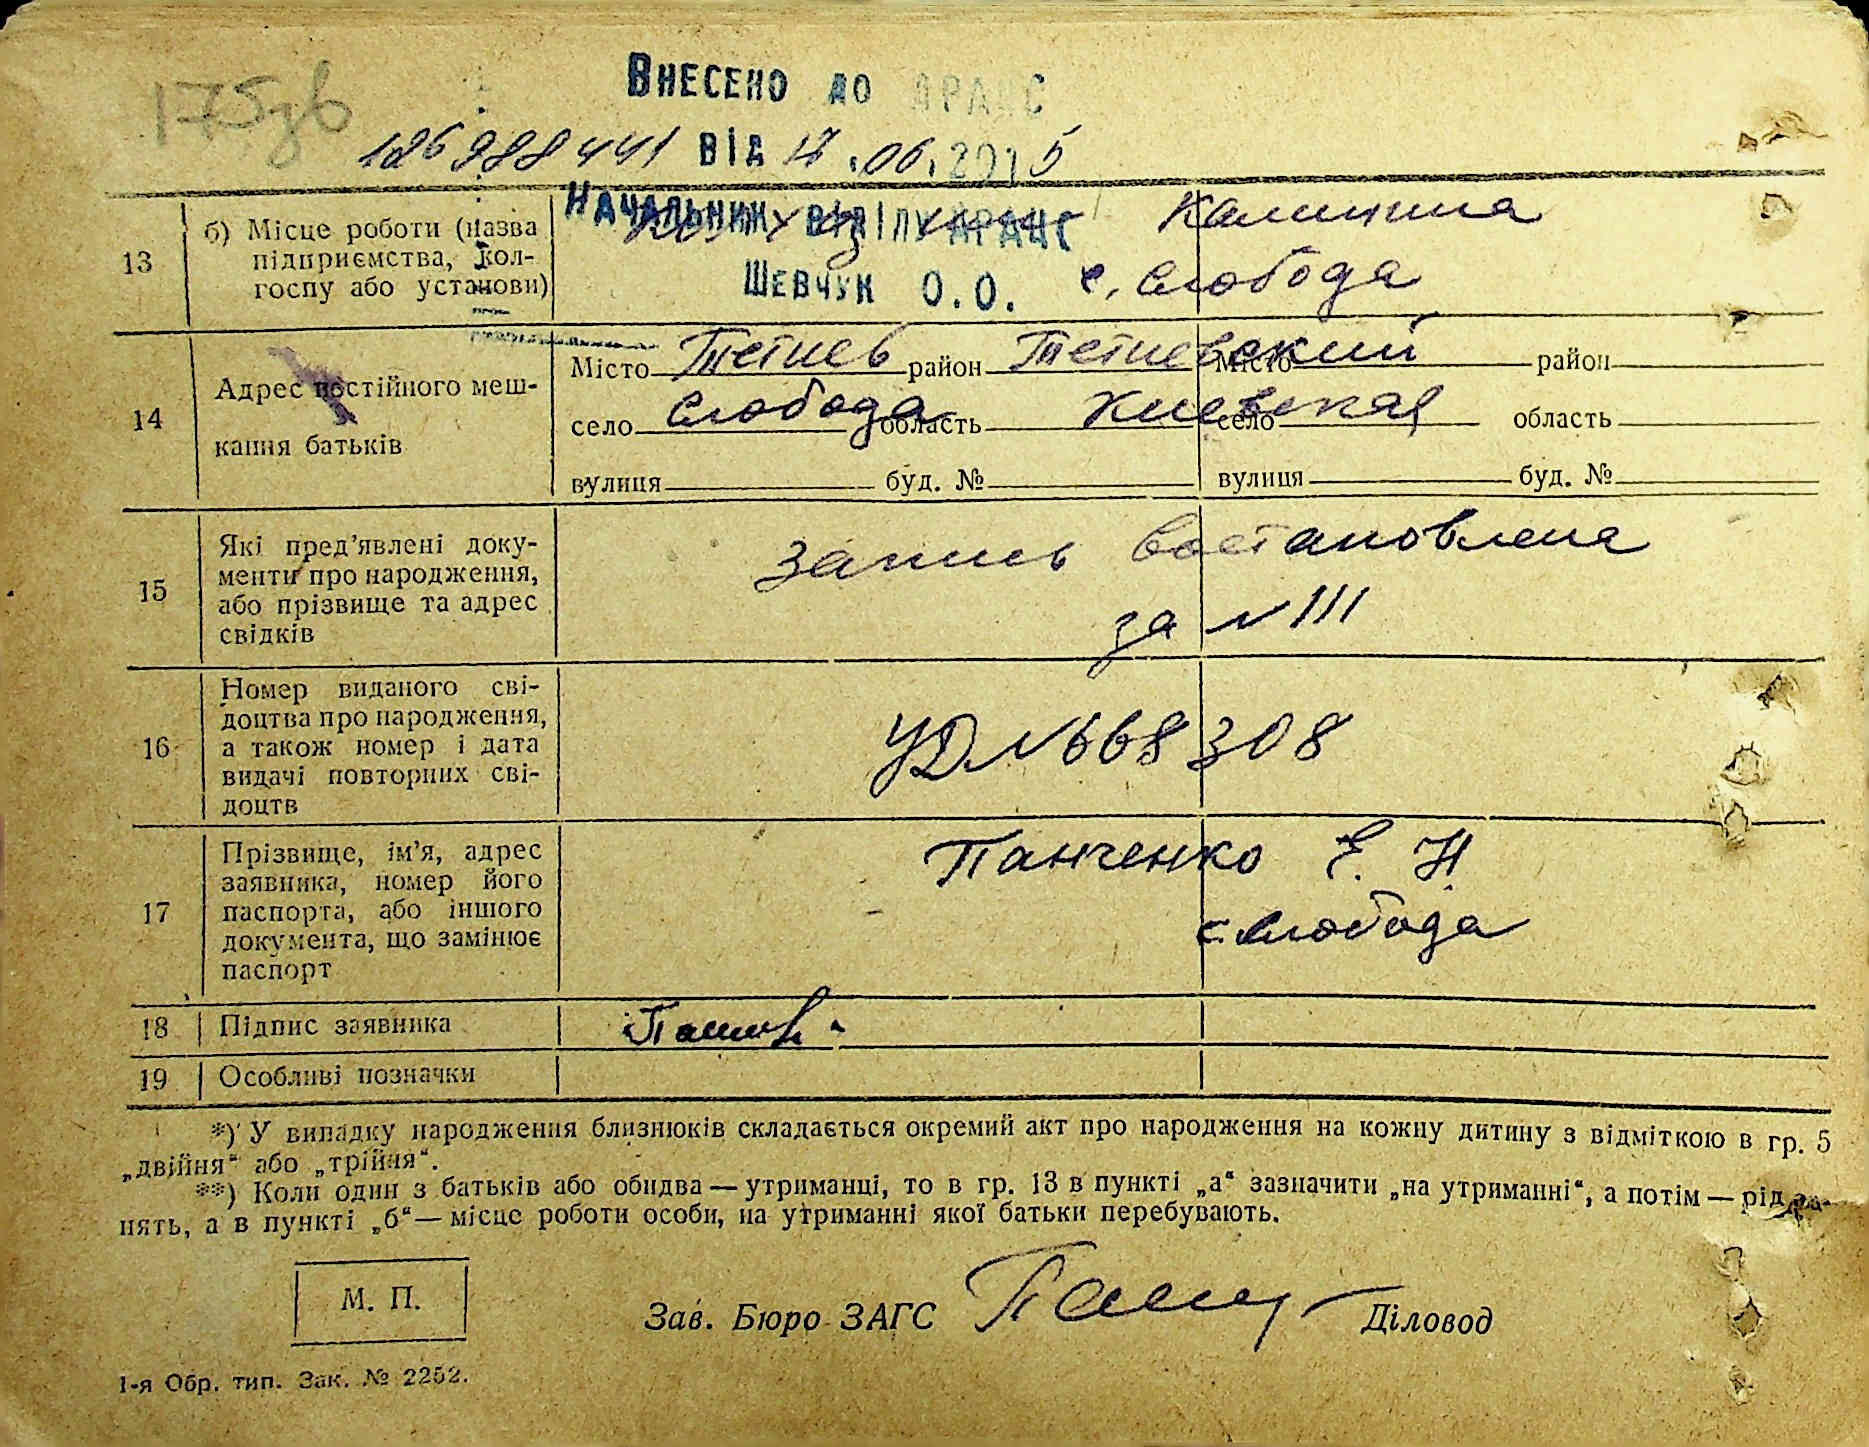 175зв
Внесено до ДРАЦС
126988441 від 17.06.2015
Начальник відділу ДРАЦС
Шевчук О.О.
13 б) Місце роботи (назва підприємства, колгоспу або установи) Калинина
с. Слобода
14 Адрес постійного мешкання батьків
Місто Тетиев район Тетиевский Місто район
село Слобода область Киевская село область
вулиця буд. № вулиця буд. №
15 Які пред’явлені документи про народження, або прізвище та адрес свідків
запись востановлена
за № 111
16 Номер виданого свідоцтва про народження, а також номер і дата видачі повторних свідоцтв
УД № 668308
17 Прізвище, ім’я, адрес заявника, номер його паспорта, або іншого документа, що замінює паспорт
Панченко Е. Н.
с. Слобода
18 Підпис заявника
19 Особливі позначки
*) У випадку народження близнюків складається окремий акт про народження на кожну дитину з відміткою в гр. 5
„двійня“ або „трійня“.
**) Коли один з батьків або обидва — утриманці, то в гр. 13 в пункті „а“ зазначити „на утриманні“, а потім — рід за-
нять, а в пункті „б“ — місце роботи особи, на утриманні якої батьки перебувають.
М. П.
Зав. Бюро ЗАГС Діловод
1-я Обр. тип. Зак. № 2252.